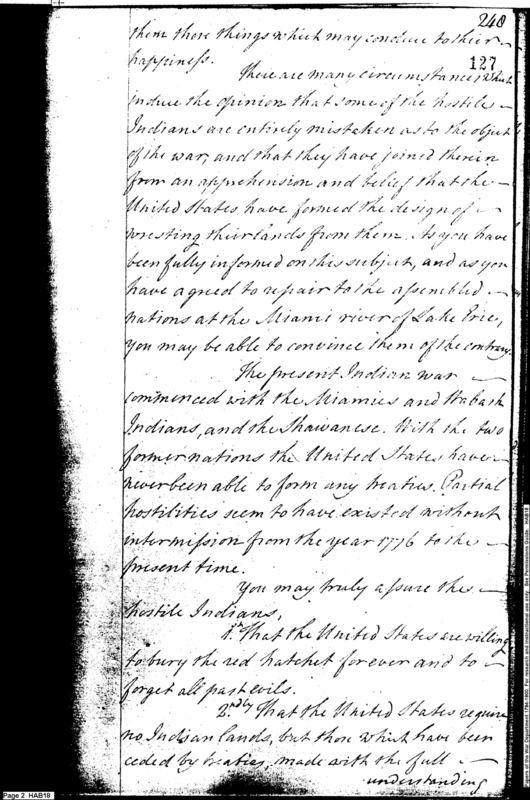 248
them those things which may conduce to their
happiness.
127
There are many circumstances which
induce the opinion that some of the hostile
Indians are entirely mistaken as to the object
of the war, and that they have joined therein
from an apprehension and belief that the
United States have formed the design of
wresting their lands from them. As you have
been fully informed on this subject, and as you
have agreed to repair to the assembled
nations at the Miami river of Lake Erie,
you may be able to convince them of the contrary.
The present Indian war
commenced with the Miamies and Wabash
Indians, and the Shawanese. With the two
former nations the United States have
never been able to form any treaties. Partial
hostilities seem to have existed without
intermission from the year 1776 to the
present time.
You may truly assure the
hostile Indians,
1st That the United States are willing
to bury the red hatchet forever and to
forget all past evils.
2ndly That the United States require
no Indian lands, but those which have been
ceded by treaties made with the full
understanding
Page 2 HAB18